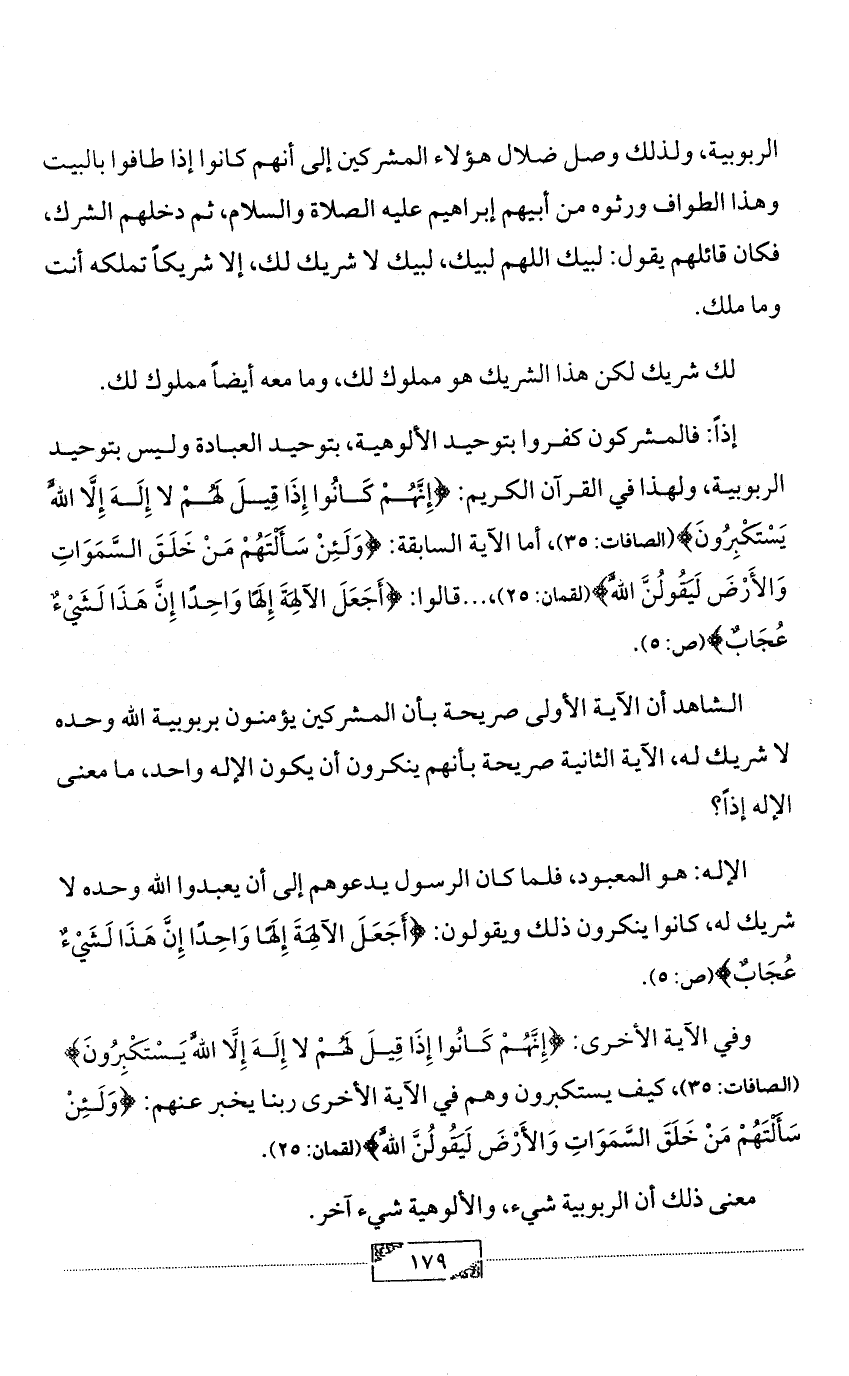 الربوبية، ولذلك وصل ضلال هؤلاء المشركين إلى أنهم كانوا إذا طافوا بالبيت
وهذا الطواف ورثوه من أبيهم إبراهيم عليه الصلاة والسلام، ثم دخلهم الشرك،
فكان قائلهم يقول: لبيك اللهم لبيك، لبيك لا شريك لك، إلا شريكاً تملكه أنت
وما ملك.
لك شريك لكن هذا الشريك هو مملوك لك، وما معه أيضاً مملوك لك.
إذاً: فالمشركون كفروا بتوحيد الألوهية، بتوحيد العبادة وليس بتوحيد
الربوبية، ولهذا في القرآن الكريم: ﴿إِنَّهُمْ كَانُوا إِذَا قِيلَ لَهُمْ لا إِلَهَ إِلَّا اللهُ
يَسْتَكْبِرُونَ﴾(الصافات: ٣٥)، أما الآية السابقة: ﴿وَلَئِنْ سَأَلْتَهُمْ مَنْ خَلَقَ السَّمَوَاتِ
وَالأَرْضَ لَيَقُولُنَّ اللهُ﴾(لقمان: ٢٥)،...قالوا: ﴿أَجَعَلَ الآلِهَةَ إِلَهًا وَاحِدًا إِنَّ هَذَا لَشَيْءٌ
عُجَابٌ﴾(ص: ٥).
الشاهد أن الآية الأولى صريحة بأن المشركين يؤمنون بربوبية الله وحده
لا شريك له، الآية الثانية صريحة بأنهم ينكرون أن يكون الإله واحد، ما معنى
الإله إذاً؟
الإله: هو المعبود، فلما كان الرسول يدعوهم إلى أن يعبدوا الله وحده لا
شريك له، كانوا ينكرون ذلك ويقولون: ﴿أَجَعَلَ الآلِهَةَ إِلَهًا وَاحِدًا إِنَّ هَذَا لَشَيْءٌ
عُجَابٌ﴾(ص: ٥).
وفي الآية الأخرى: ﴿إِنَّهُمْ كَانُوا إِذَا قِيلَ لَهُمْ لا إِلَهَ إِلَّا اللهُ يَسْتَكْبِرُونَ﴾
(الصافات: ٣٥)، كيف يستكبرون وهم في الآية الأخرى ربنا يخبر عنهم: ﴿وَلَئِنْ
سَأَلْتَهُمْ مَنْ خَلَقَ السَّمَوَاتِ وَالأَرْضَ لَيَقُولُنَّ اللهُ﴾(لقمان: ٢٥).
معنى ذلك أن الربوبية شيء، والألوهية شيء آخر.
١٧٩